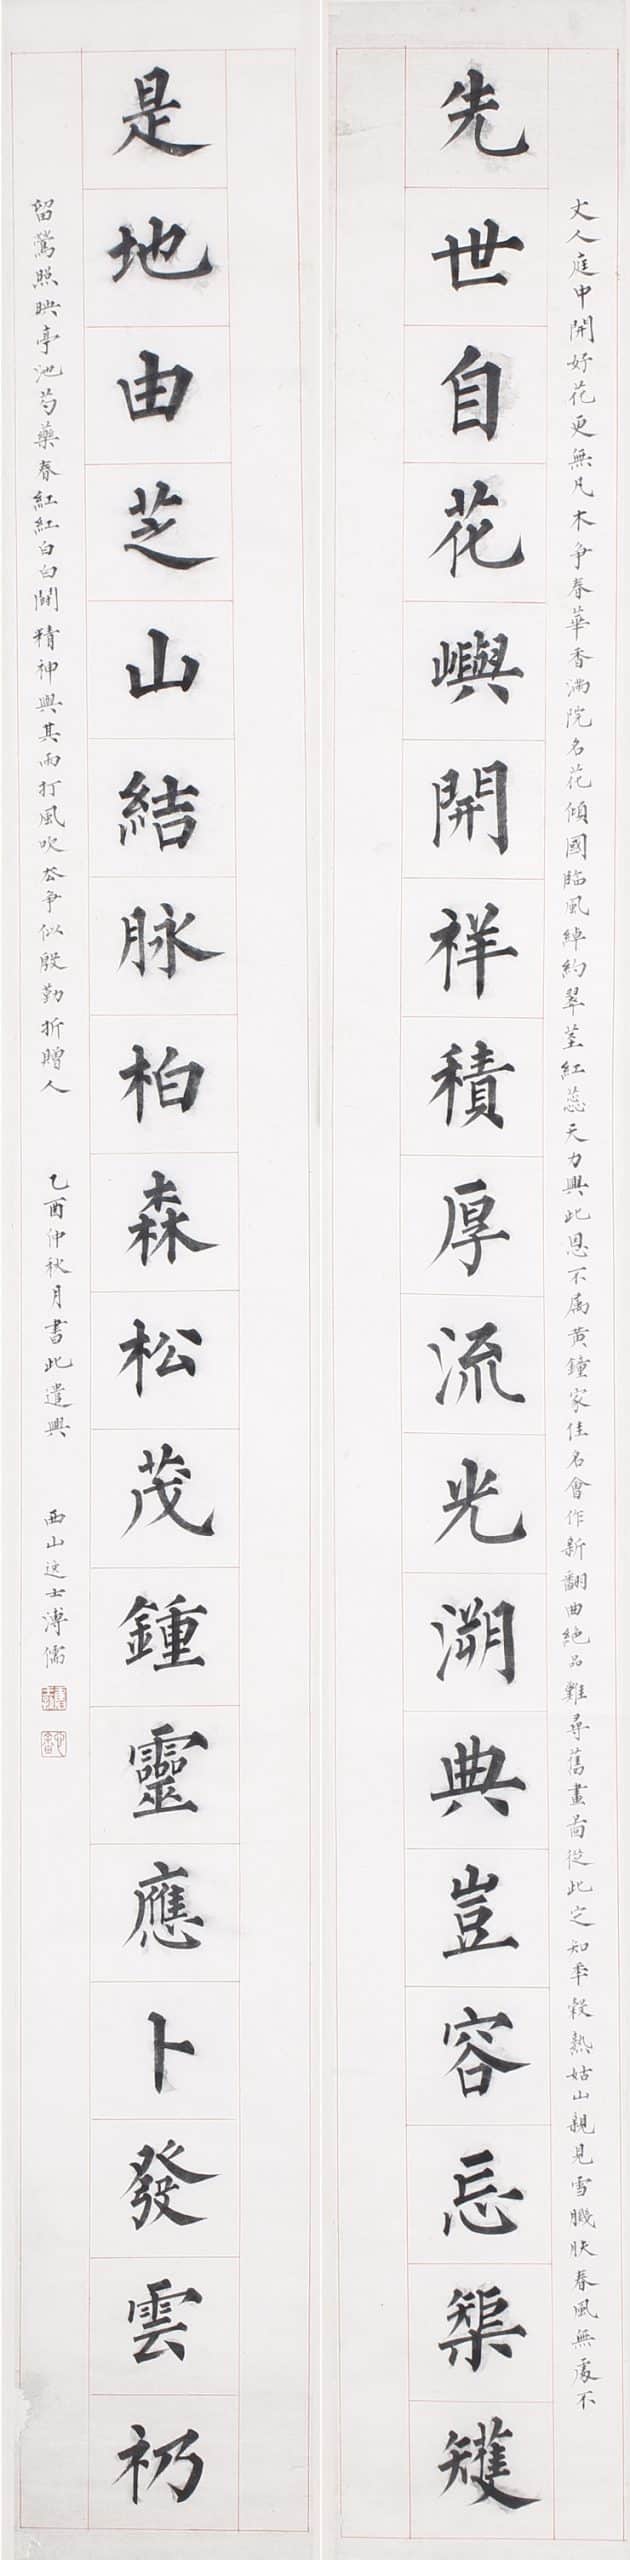 丈人庭中開好花更無凡木争春華香滿院名花傾國臨風綽約翠莖紅蕊天力與此恩不属黄鐘家佳名會作新翻曲絶品難尋舊畫啚從此定知年穀熟姑山親見雪肌膚春風無處不
先世自花嶼開祥積厚流光溯典豈容忘榘矱
是地由芝山結脉柏森松茂鍾靈應卜發雲礽
留鶯照映亭池芍藥春紅紅白白鬭精神與其雨打風吹去争似殷勤折贈人
乙酉仲秋月書此遣興
西山逸士溥儒